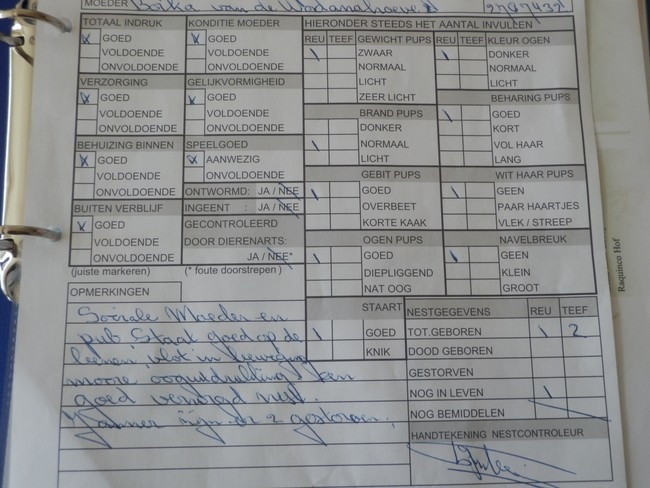 MOEDER Boika van de Wodanshoeve 2797432
TOTAAL INDRUK KONDITIE MOEDER HIERONDER STEEDS HET AANTAL INVULLEN
X GOED X GOED REU TEEF GEWICHT PUPS REU TEEF KLEUR OGEN
VOLDOENDE VOLDOENDE 1 ZWAAR 1 DONKER
ONVOLDOENDE ONVOLDOENDE NORMAAL NORMAAL
VERZORGING GELIJKVORMIGHEID LICHT LICHT
X GOED X GOED ZEER LICHT BEHARING PUPS
VOLDOENDE VOLDOENDE BRAND PUPS 1 GOED
ONVOLDOENDE ONVOLDOENDE DONKER KORT
BEHUIZING BINNEN SPEELGOED 1 NORMAAL VOL HAAR
X GOED X AANWEZIG LICHT LANG
VOLDOENDE ONVOLDOENDE GEBIT PUPS WIT HAAR PUPS
ONVOLDOENDE ONTWORMD: JA / NEE 1 GOED 1 GEEN
BUITEN VERBLIJF INGEENT : JA / NEE OVERBEET PAAR HAARTJES
X GOED GECONTROLEERD KORTE KAAK VLEK / STREEP
VOLDOENDE DOOR DIERENARTS: OGEN PUPS NAVELBREUK
ONVOLDOENDE JA / NEE* 1 GOED 1 GEEN
(juiste markeren) (* foute doorstrepen) DIEPLIGGEND KLEIN
OPMERKINGEN NAT OOG GROOT
Sociale Moeder en STAART NESTGEGEVENS REU TEEF
pub. Staat goed op de 1 GOED TOT.GEBOREN 1 2
vlot in beweging KNIK DOOD GEBOREN
mooie GESTORVEN
goed verzorgd nest. NOG IN LEVEN 1
Jammer zijn er 2 gestorven. NOG BEMIDDELEN
HANDTEKENING NESTCONTROLEUR
Raquinco Hof